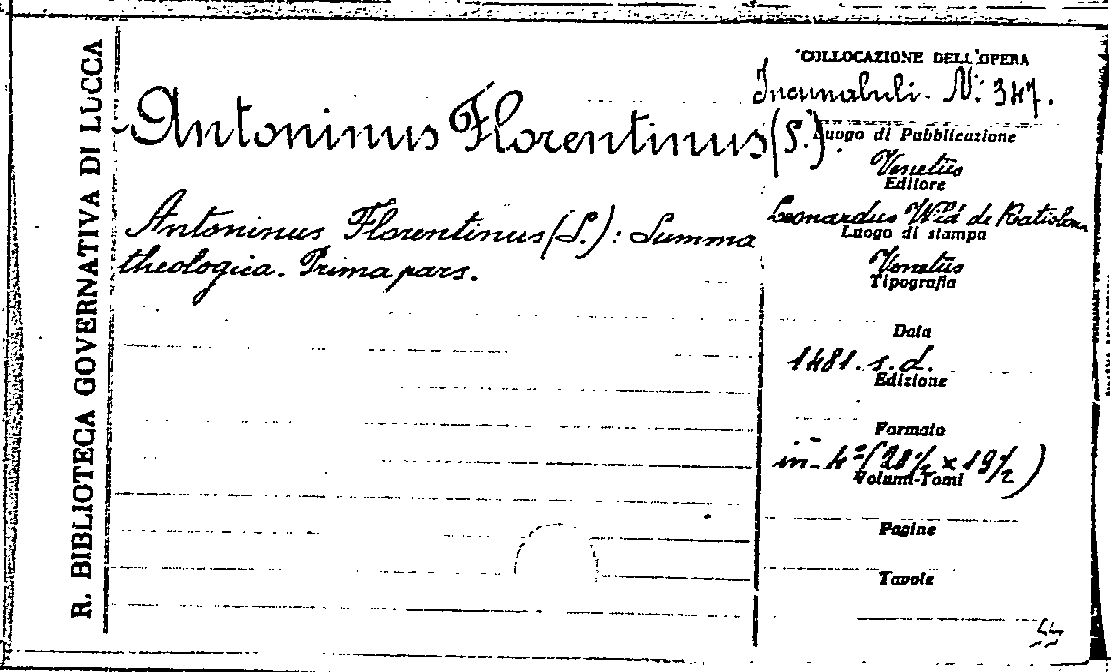 R. BIBLIOTECA GOVERNATIVA DI LUCCA
Antoninus Florentinus (S.).
Antoninus Florentinus (S.): Summa
theologica. Prima pars.
COLLOCAZIONE DELL'OPERA
Incunabuli. N: 347.
Luogo di Pubblicazione
Venetiis
Editore
Leonardus Wild de Ratisbona
Luogo di stampa
Venetiis
Tipografia
Data
1481. s. d.
Edizione
Formato
in-4º (28½ x 19½)
Volumi-Tomi
Pagine
Tavole